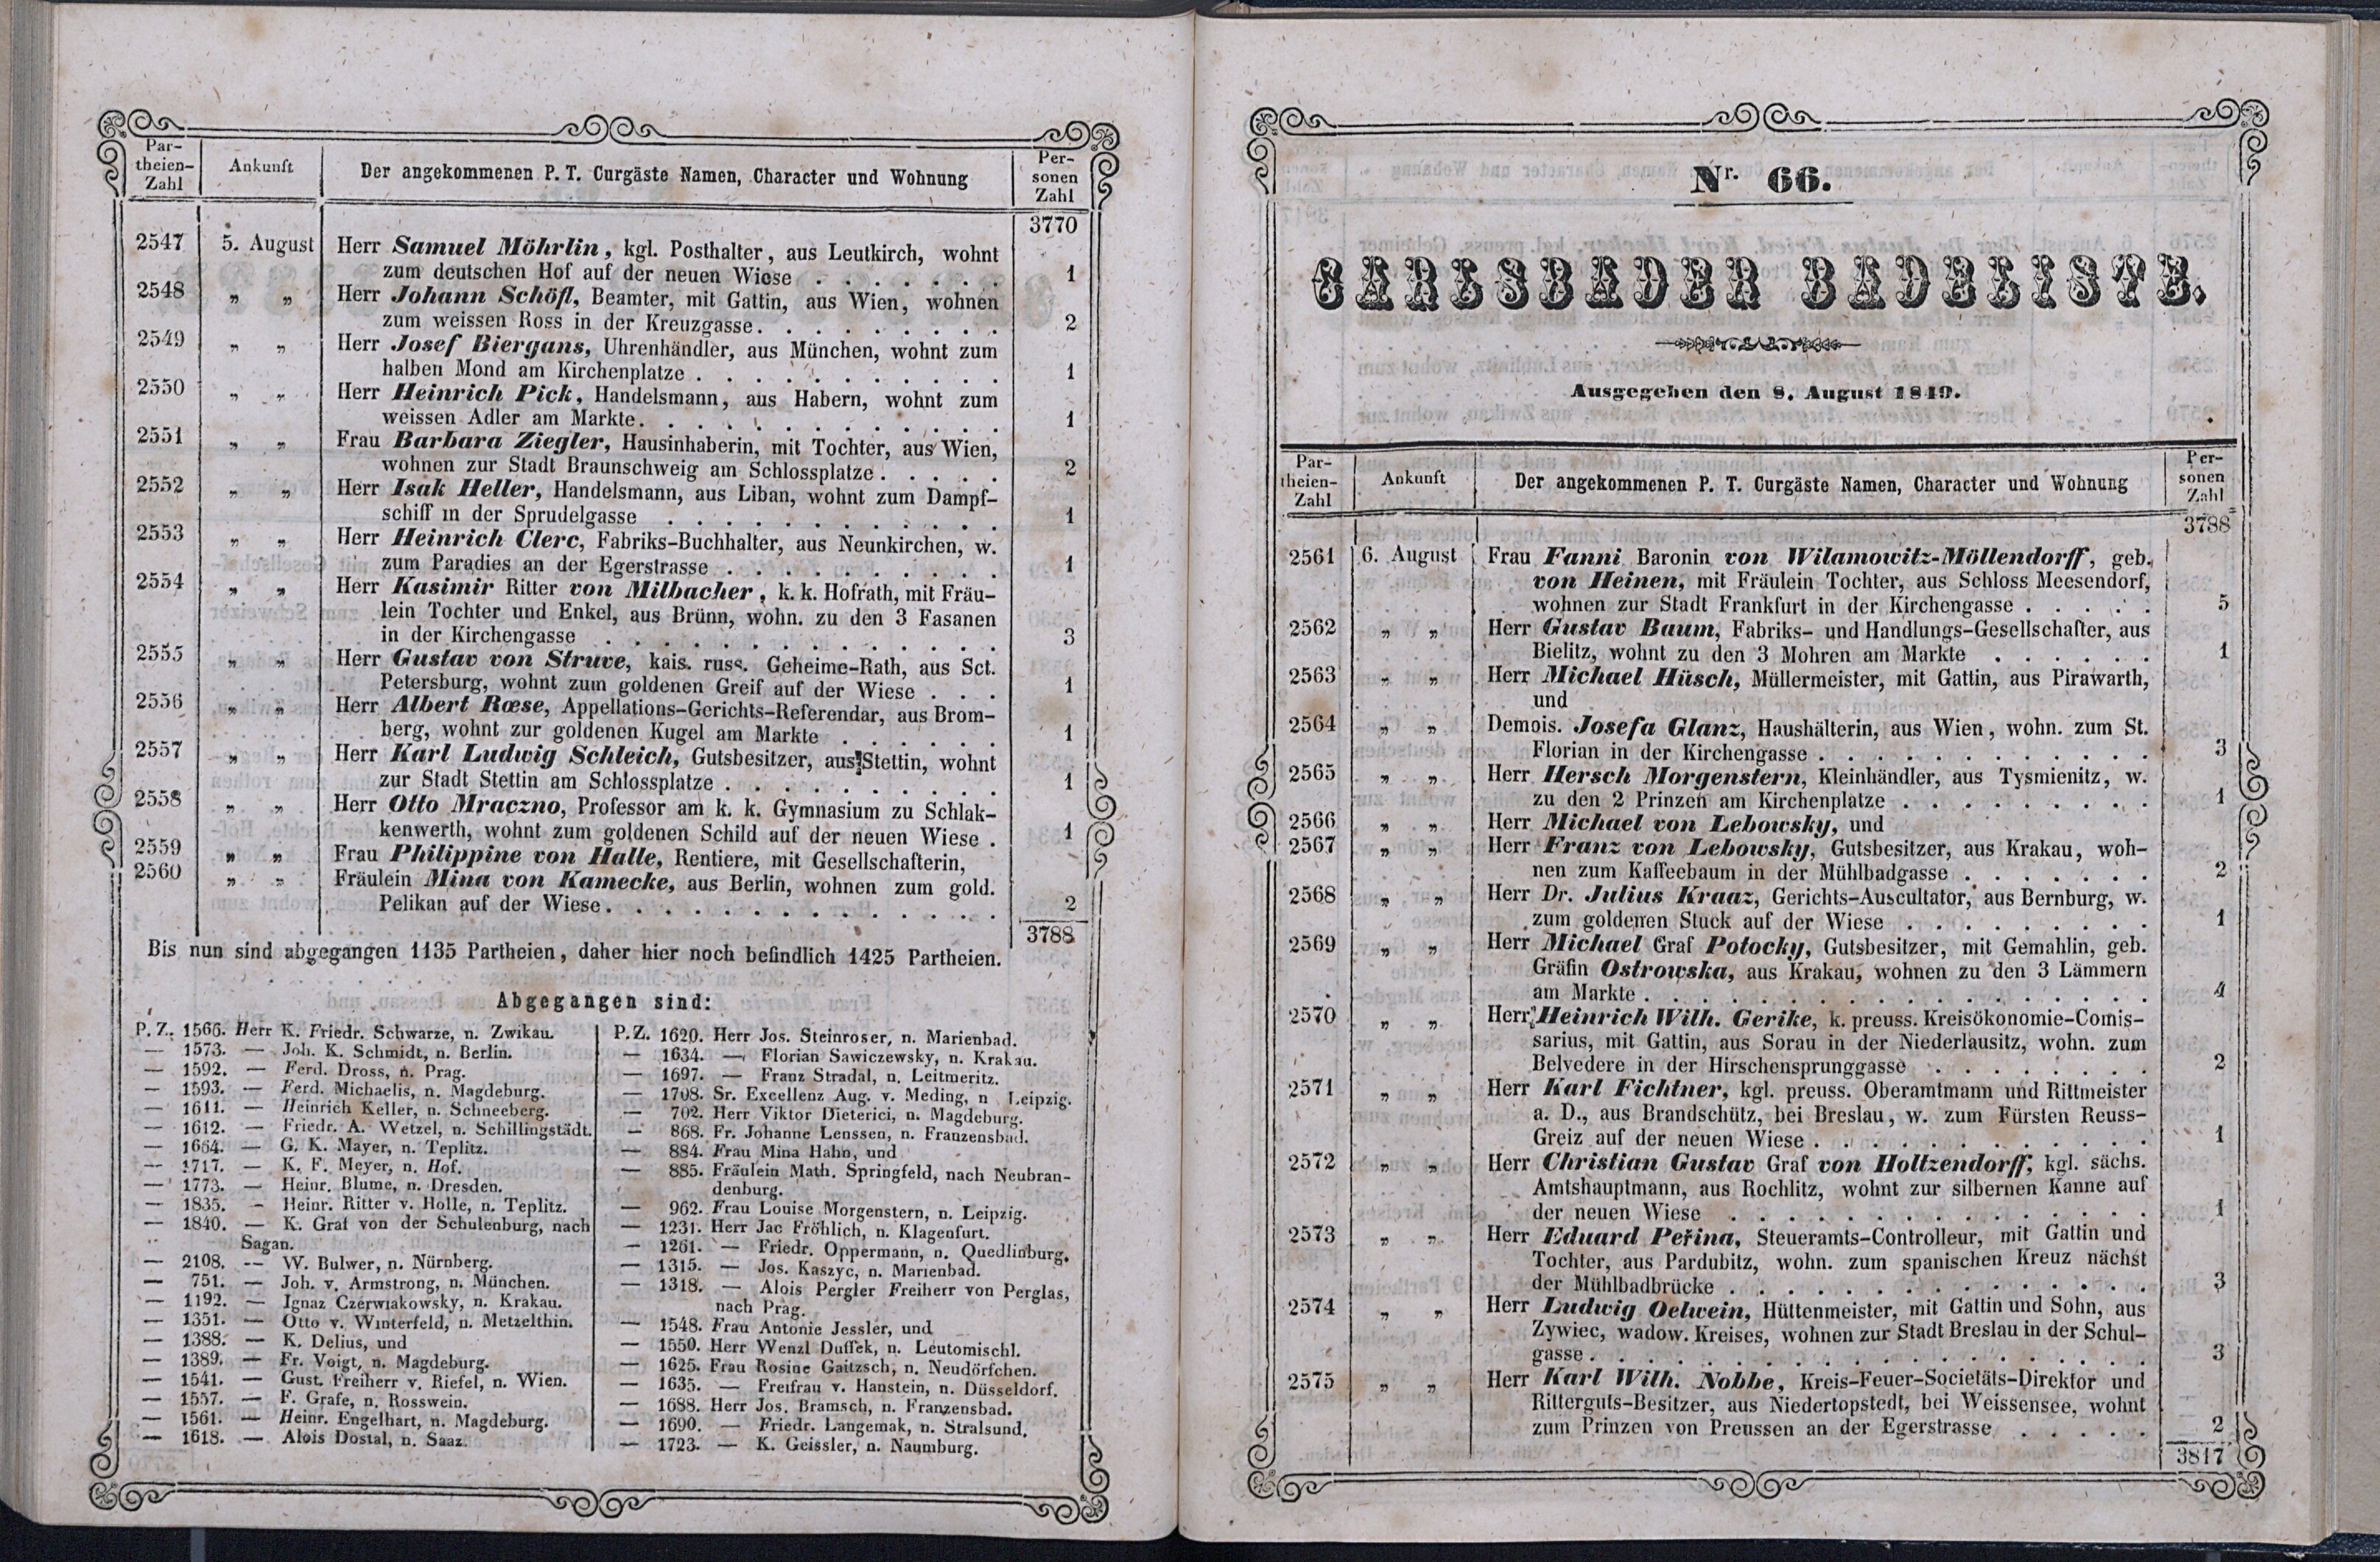 Par-
theien-
Zahl
Ankunft
Der angekommenen P. T. Curgäste Namen, Character und Wohnung
Per-
sonen
Zahl
3770
2547 5. August Herr Samuel Möhrlin, kgl. Posthalter, aus Leutkirch, wohnt
zum deutschen Hof auf der neuen Wiese . . . . . . . 1
2548 „ „ Herr Johann Schöfl, Beamter, mit Gattin, aus Wien, wohnen
zum weissen Ross in der Kreuzgasse. . . . . . . . . 2
2549 „ „ Herr Josef Biergans, Uhrenhändler, aus München, wohnt zum
halben Mond am Kirchenplatze . . . . . . . . . . . 1
2550 „ „ Herr Heinrich Pick, Handelsmann, aus Habern, wohnt zum
weissen Adler am Markte. . . . . . . . . . . . . 1
2551 „ „ Frau Barbara Ziegler, Hausinhaberin, mit Tochter, aus Wien,
wohnen zur Stadt Braunschweig am Schlossplatze . . . . . 2
2552 „ „ Herr Isak Heller, Handelsmann, aus Liban, wohnt zum Dampf-
schiff in der Sprudelgasse . . . . . . . . . . . . 1
2553 „ „ Herr Heinrich Clerc, Fabriks-Buchhalter, aus Neunkirchen, w.
zum Paradies an der Egerstrasse . . . . . . . . . . 1
2554 „ „ Herr Kasimir Ritter von Milbacher, k. k. Hofrath, mit Fräu-
lein Tochter und Enkel, aus Brünn, wohn. zu den 3 Fasanen
in der Kirchengasse . . . . . . . . . . . . . . 3
2555 „ „ Herr Gustav von Struve, kais. russ. Geheime-Rath, aus Sct.
Petersburg, wohnt zum goldenen Greif auf der Wiese . . . 1
2556 „ „ Herr Albert Rœse, Appellations-Gerichts-Referendar, aus Brom-
berg, wohnt zur goldenen Kugel am Markte . . . . . . 1
2557 „ „ Herr Karl Ludwig Schleich, Gutsbesitzer, aus Stettin, wohnt
zur Stadt Stettin am Schlossplatze . . . . . . . . . . 1
2558 „ „ Herr Otto Mraczno, Professor am k. k. Gymnasium zu Schlak-
kenwerth, wohnt zum goldenen Schild auf der neuen Wiese . 1
2559 „ „ Frau Philippine von Halle, Rentiere, mit Gesellschafterin,
2560 „ „ Fräulein Mina von Kamecke, aus Berlin, wohnen zum gold.
Pelikan auf der Wiese. . . . . . . . . . . . . . 2
3788
Bis nun sind abgegangen 1135 Partheien, daher hier noch befindlich 1425 Partheien.
Abgegangen sind:
P. Z. 1566. Herr K. Friedr. Schwarze, n. Zwikau.
— 1573. — Joh. K. Schmidt, n. Berlin.
— 1592. — Ferd. Dross, n. Prag.
— 1593. — Ferd. Michaelis, n. Magdeburg.
— 1611. — Heinrich Keller, n. Schneeberg.
— 1612. — Friedr. A. Wetzel, n. Schillingstädt.
— 1664. — G. K. Mayer, n. Teplitz.
— 1717. — K. F. Meyer, n. Hof.
— 1773. — Heinr. Blume, n. Dresden.
— 1835. — Heinr. Ritter v. Holle, n. Teplitz.
— 1840. — K. Graf von der Schulenburg, nach
Sagan.
— 2108. — W. Bulwer, n. Nürnberg.
— 751. — Joh. v. Armstrong, n. München.
— 1192. — Ignaz Czerwiakowsky, n. Krakau.
— 1351. — Otto v. Winterfeld, n. Metzelthin.
— 1388. — K. Delius, und
— 1389. — Fr. Voigt, n. Magdeburg.
— 1541. — Gust. Freiherr v. Riefel, n. Wien.
— 1557. — F. Grafe, n. Rosswein.
— 1561. — Heinr. Engelhart, n. Magdeburg.
— 1618. — Alois Dostal, n. Saaz.
P. Z. 1620. Herr Jos. Steinroser, n. Marienbad.
— 1634. — Florian Sawiczewsky, n. Krakau.
— 1697. — Franz Stradal, n. Leitmeritz.
— 1708. Sr. Excellenz Aug. v. Meding, n Leipzig.
— 702. Herr Viktor Dieterici, n. Magdeburg.
— 868. Fr. Johanne Lenssen, n. Franzensbad.
— 884. Frau Mina Hahn, und
— 885. Fräulein Math. Springfeld, nach Neubran-
denburg.
— 962. Frau Louise Morgenstern, n. Leipzig.
— 1231. Herr Jac Fröhlich, n. Klagenfurt.
— 1261. — Friedr. Oppermann, n. Quedlinburg.
— 1315. — Jos. Kaszyc, n. Marienbad.
— 1318. — Alois Pergler Freiherr von Perglas,
nach Prag.
— 1548. Frau Antonie Jessler, und
— 1550. Herr Wenzl Duffek, n. Leutomischl.
— 1625. Frau Rosine Gaitzsch, n. Neudörfchen.
— 1635. — Freifrau v. Hanstein, n. Düsseldorf.
— 1688. Herr Jos. Bramsch, n. Franzensbad.
— 1690. — Friedr. Langemak, n. Stralsund.
— 1723. — K. Geissler, n. Naumburg.
Nr. 66.
CARLSBADER BADELISTE.
Ausgegeben den 8. August 1849.
Par-
theien-
Zahl
Ankunft
Der angekommenen P. T. Curgäste Namen, Character und Wohnung
Per-
sonen
Zahl
3788
2561 6. August Frau Fanni Baronin von Wilamowitz-Möllendorff, geb.
von Heinen, mit Fräulein Tochter, aus Schloss Meesendorf,
wohnen zur Stadt Frankfurt in der Kirchengasse . . . . . 5
2562 „ „ Herr Gustav Baum, Fabriks- und Handlungs-Gesellschafter, aus
Bielitz, wohnt zu den 3 Mohren am Markte . . . . . . 1
2563 „ „ Herr Michael Hüsch, Müllermeister, mit Gattin, aus Pirawarth,
und
2564 „ „ Demois. Josefa Glanz, Haushälterin, aus Wien, wohn. zum St.
Florian in der Kirchengasse . . . . . . . . . . . . 3
2565 „ „ Herr Hersch Morgenstern, Kleinhändler, aus Tysmienitz, w.
zu den 2 Prinzen am Kirchenplatze . . . . . . . . . 1
2566 „ „ Herr Michael von Lebowsky, und
2567 „ „ Herr Franz von Lebowsky, Gutsbesitzer, aus Krakau, woh-
nen zum Kaffeebaum in der Mühlbadgasse . . . . . . . 2
2568 „ „ Herr Dr. Julius Kraaz, Gerichts-Auscultator, aus Bernburg, w.
zum goldenen Stuck auf der Wiese . . . . . . . . . 1
2569 „ „ Herr Michael Graf Potocky, Gutsbesitzer, mit Gemahlin, geb.
Gräfin Ostrowska, aus Krakau, wohnen zu den 3 Lämmern
am Markte . . . . . . . . . . . . . . . . . . 4
2570 „ „ Herr Heinrich Wilh. Gerike, k. preuss. Kreisökonomie-Comis-
sarius, mit Gattin, aus Sorau in der Niederlausitz, wohn. zum
Belvedere in der Hirschensprunggasse . . . . . . . . 2
2571 „ „ Herr Karl Fichtner, kgl. preuss. Oberamtmann und Rittmeister
a. D., aus Brandschütz, bei Breslau, w. zum Fürsten Reuss-
Greiz auf der neuen Wiese . . . . . . . . . . . . 1
2572 „ „ Herr Christian Gustav Graf von Holtzendorff, kgl. sächs.
Amtshauptmann, aus Rochlitz, wohnt zur silbernen Kanne auf
der neuen Wiese . . . . . . . . . . . . . . . 1
2573 „ „ Herr Eduard Peřina, Steueramts-Controlleur, mit Gattin und
Tochter, aus Pardubitz, wohn. zum spanischen Kreuz nächst
der Mühlbadbrücke . . . . . . . . . . . . . . . 3
2574 „ „ Herr Ludwig Oelwein, Hüttenmeister, mit Gattin und Sohn, aus
Zywiec, wadow. Kreises, wohnen zur Stadt Breslau in der Schul-
gasse . . . . . . . . . . . . . . . . . . . . 3
2575 „ „ Herr Karl Wilh. Nobbe, Kreis-Feuer-Societäts-Direktor und
Ritterguts-Besitzer, aus Niedertopstedt, bei Weissensee, wohnt
zum Prinzen von Preussen an der Egerstrasse . . . . . 2
3817